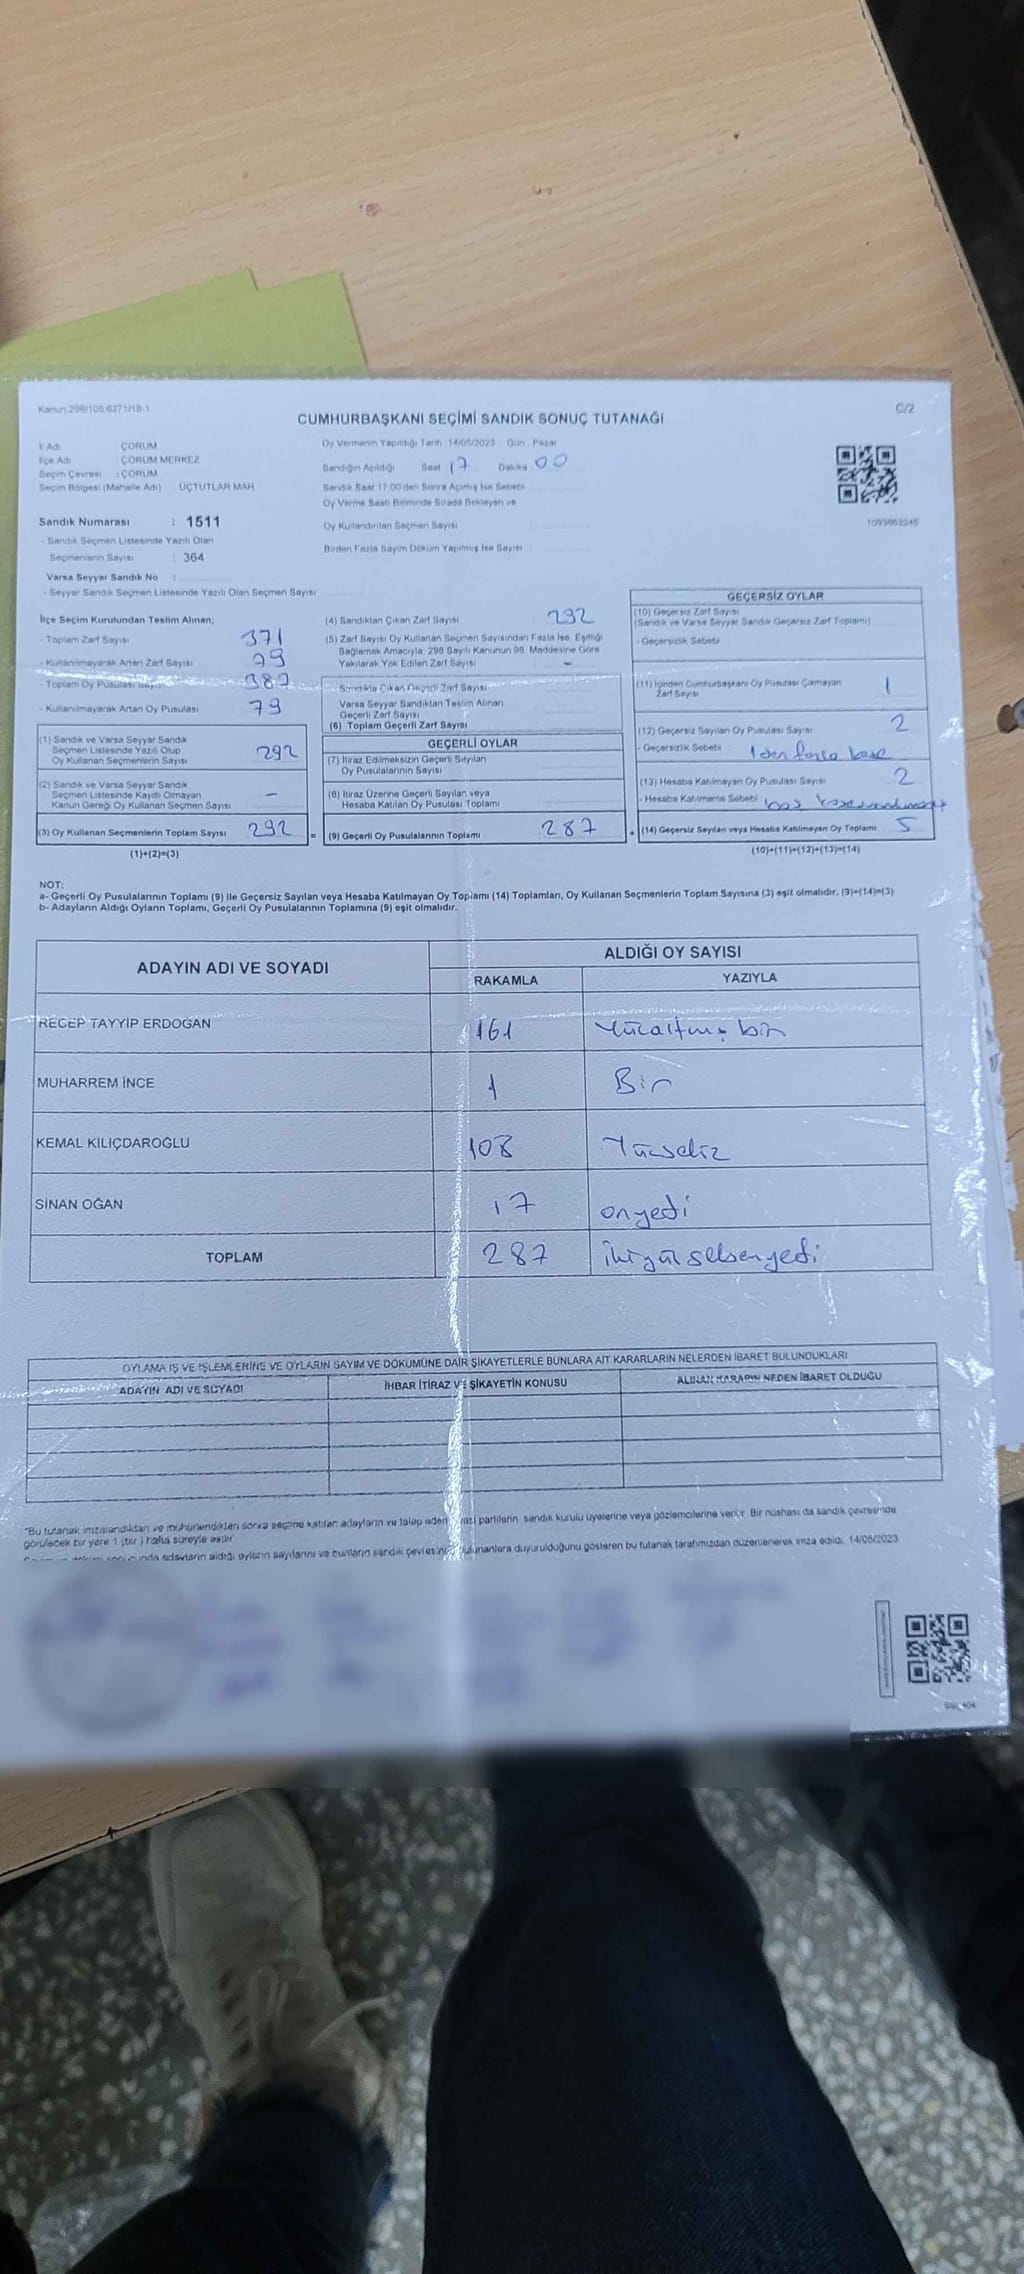 Kanun:298/105,6271/18-1
C/2
CUMHURBAŞKANI SEÇİMİ SANDIK SONUÇ TUTANAĞI
İl Adı : ÇORUM
İlçe Adı : ÇORUM MERKEZ
Seçim Çevresi : ÇORUM
Seçim Bölgesi (Mahalle Adı) : ÜÇTUTLAR MAH
Oy Vermenin Yapıldığı Tarih : 14/05/2023 Gün : Pazar
Sandığın Açıldığı Saat 17 Dakika 00
Sandık Saat 17:00'den Sonra Açılmış İse Sebebi
Oy Verme Saati Bitiminde Sırada Bekleyen ve
Oy Kullandırılan Seçmen Sayısı
Birden Fazla Sayım Döküm Yapılmış İse Sayısı
1093863246
Sandık Numarası : 1511
- Sandık Seçmen Listesinde Yazılı Olan
Seçmenlerin Sayısı : 364
Varsa Seyyar Sandık No :
- Seyyar Sandık Seçmen Listesinde Yazılı Olan Seçmen Sayısı:
İlçe Seçim Kurulundan Teslim Alınan;
- Toplam Zarf Sayısı 371
- Kullanılmayarak Artan Zarf Sayısı 79
- Toplam Oy Pusulası Sayısı 387
- Kullanılmayarak Artan Oy Pusulası 79
(1) Sandık ve Varsa Seyyar Sandık
Seçmen Listesinde Yazılı Olup
Oy Kullanan Seçmenlerin Sayısı 292
(2) Sandık ve Varsa Seyyar Sandık
Seçmen Listesinde Kayıtlı Olmayan
Kanun Gereği Oy Kullanan Seçmen Sayısı -
(3) Oy Kullanan Seçmenlerin Toplam Sayısı 292 =
(1)+(2)=(3)
(4) Sandıktan Çıkan Zarf Sayısı 292
(5) Zarf Sayısı Oy Kullanan Seçmen Sayısından Fazla İse, Eşitliği
Sağlamak Amacıyla, 298 Sayılı Kanunun 98. Maddesine Göre
Yakılarak Yok Edilen Zarf Sayısı -
Sandıkta Çıkan Geçerli Zarf Sayısı
Varsa Seyyar Sandıktan Teslim Alınan
Geçerli Zarf Sayısı
(6) Toplam Geçerli Zarf Sayısı
GEÇERLİ OYLAR
(7) İtiraz Edilmeksizin Geçerli Sayılan
Oy Pusulalarının Sayısı
(8) İtiraz Üzerine Geçerli Sayılan veya
Hesaba Katılan Oy Pusulası Toplamı
(9) Geçerli Oy Pusulalarının Toplamı 287 +
GEÇERSİZ OYLAR
(10) Geçersiz Zarf Sayısı
(Sandık ve Varsa Seyyar Sandık Geçersiz Zarf Toplamı)
- Geçersizlik Sebebi
(11) İçinden Cumhurbaşkanı Oy Pusulası Çıkmayan
Zarf Sayısı 1
(12) Geçersiz Sayılan Oy Pusulası Sayısı 2
- Geçersizlik Sebebi 1 den fazla
(13) Hesaba Katılmayan Oy Pusulası Sayısı 2
- Hesaba Katılmama Sebebi
(14) Geçersiz Sayılan veya Hesaba Katılmayan Oy Toplamı 5
(10)+(11)+(12)+(13)=(14)
NOT:
a- Geçerli Oy Pusulalarının Toplamı (9) ile Geçersiz Sayılan veya Hesaba Katılmayan Oy Toplamı (14) Toplamları, Oy Kullanan Seçmenlerin Toplam Sayısına (3) eşit olmalıdır. (9)+(14)=(3)
b- Adayların Aldığı Oyların Toplamı, Geçerli Oy Pusulalarının Toplamına (9) eşit olmalıdır.
ADAYIN ADI VE SOYADI ALDIĞI OY SAYISI
RAKAMLA YAZIYLA
RECEP TAYYİP ERDOĞAN 161 Yüzaltmış bir
MUHARREM İNCE 1 Bir
KEMAL KILIÇDAROĞLU 108 Yüzsekiz
SİNAN OĞAN 17 onyedi
TOPLAM 287 ikiyüzseksenyedi
OYLAMA İŞ VE İŞLEMLERİNE VE OYLARIN SAYIM VE DÖKÜMÜNE DAİR ŞİKAYETLERLE BUNLARA AİT KARARLARIN NELERDEN İBARET BULUNDUKLARI
ADAYIN ADI VE SOYADI İHBAR İTİRAZ VE ŞİKAYETİN KONUSU ALINAN KARARIN NEDEN İBARET OLDUĞU
"Bu tutanak imzalandıktan ve mühürlendikten sonra seçime katılan adayların ve talep eden siyasi partilerin sandık kurulu üyelerine veya gözlemcilerine verilir. Bir nüshası da sandık çevresinde
görülecek bir yere 1 (bir) hafta süreyle asılır."
sonucunda adayların aldığı oyların sayılarını ve bunların sandık çevresinde bulunanlara duyurulduğunu gösteren bu tutanak tarafımızdan düzenlenerek imza edildi. 14/05/2023